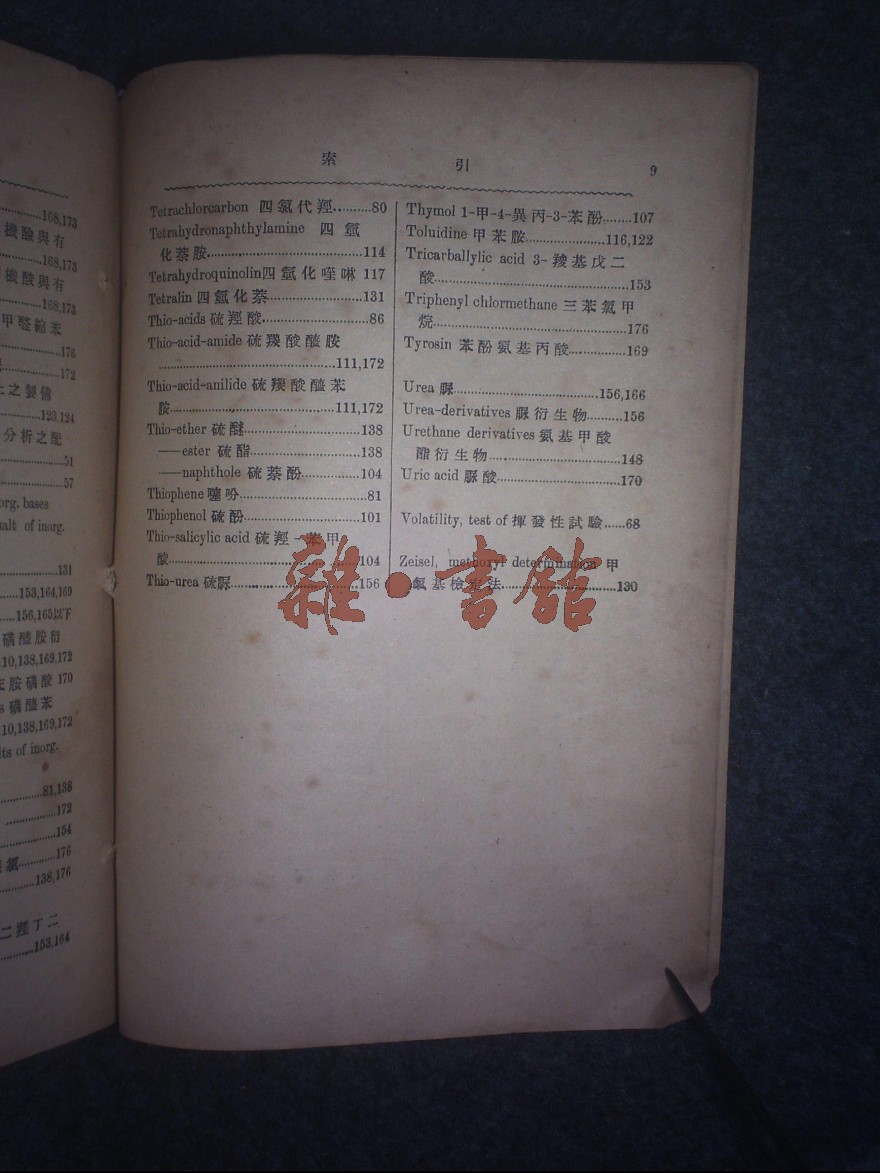 168,173
機酸與有
168,173
機酸與有
168,173
甲醛縮苯
176
172
上之製備
123,124
分析之配
51
57
org. bases
salt of inorg.
131
153,164,169
156,165以下
磺醯胺衍
10,138,169,172
胺磺酸 170
s 磺醯苯
10,138,169,172
lts of inorg.
81,138
172
154
氯............176
138,176
二羥丁二
153,164
索 引 9
Tetrachlorcarbon 四氯代羥..........80
Tetrahydronaphthylamine 四氫
化萘胺..........114
Tetrahydroquinolin四氫化喹啉 117
Tetralin 四氫化萘..........131
Thio-acids 硫羥酸..........86
Thio-acid-amide 硫羰酸醯胺
..........111,172
Thio-acid-anilide 硫羰酸醯苯
胺..........111,172
Thio-ether 硫醚..........138
——ester 硫酯..........138
——naphthole 硫萘酚..........104
Thiophene 噻吩..........81
Thiophenol 硫酚..........101
Thio-salicylic acid 硫羥-苯甲
酸..........104
Thio-urea 硫脲..........156
Thymol 1-甲-4-異丙-3-苯酚........107
Toluidine 甲苯胺..........116,122
Tricarballylic acid 3-羧基戊二
酸..........153
Triphenyl chlormethane 三苯氯甲
烷..........176
Tyrosin 苯酚氨基丙酸..........169
Urea 脲..........156,166
Urea-derivatives 脲衍生物..........156
Urethane derivatives 氨基甲酸
酯衍生物..........148
Uric acid 脲酸..........170
Volatility, test of 揮發性試驗......68
Zeisel, methoxyl determination 甲
氧基檢定法..........130
雜·書館